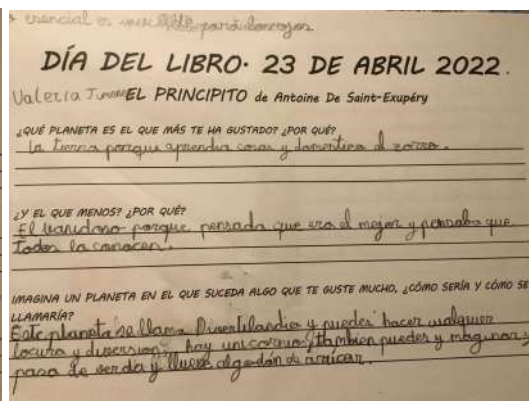 esencial es invisible para los ojos
DÍA DEL LIBRO· 23 DE ABRIL 2022.
Valeria EL PRINCIPITO de Antoine De Saint-Exupéry
¿QUÉ PLANETA ES EL QUE MÁS TE HA GUSTADO? ¿POR QUÉ?
la tierra porque aprendia cosas y domestica al zorro.
¿Y EL QUE MENOS? ¿POR QUÉ?
El vanidoso porque pensada que era el mejor y pensaba que
todos la conocen.
IMAGINA UN PLANETA EN EL QUE SUCEDA ALGO QUE TE GUSTE MUCHO, ¿CÓMO SERÍA Y CÓMO SE
LLAMARÍA?
Este planeta se llama Divertilandia y puedes hacer cualquier
locura y diversion, hay unicornios, tambien puedes y maginar,
pasa de verda y llueve algodón de azúcar.